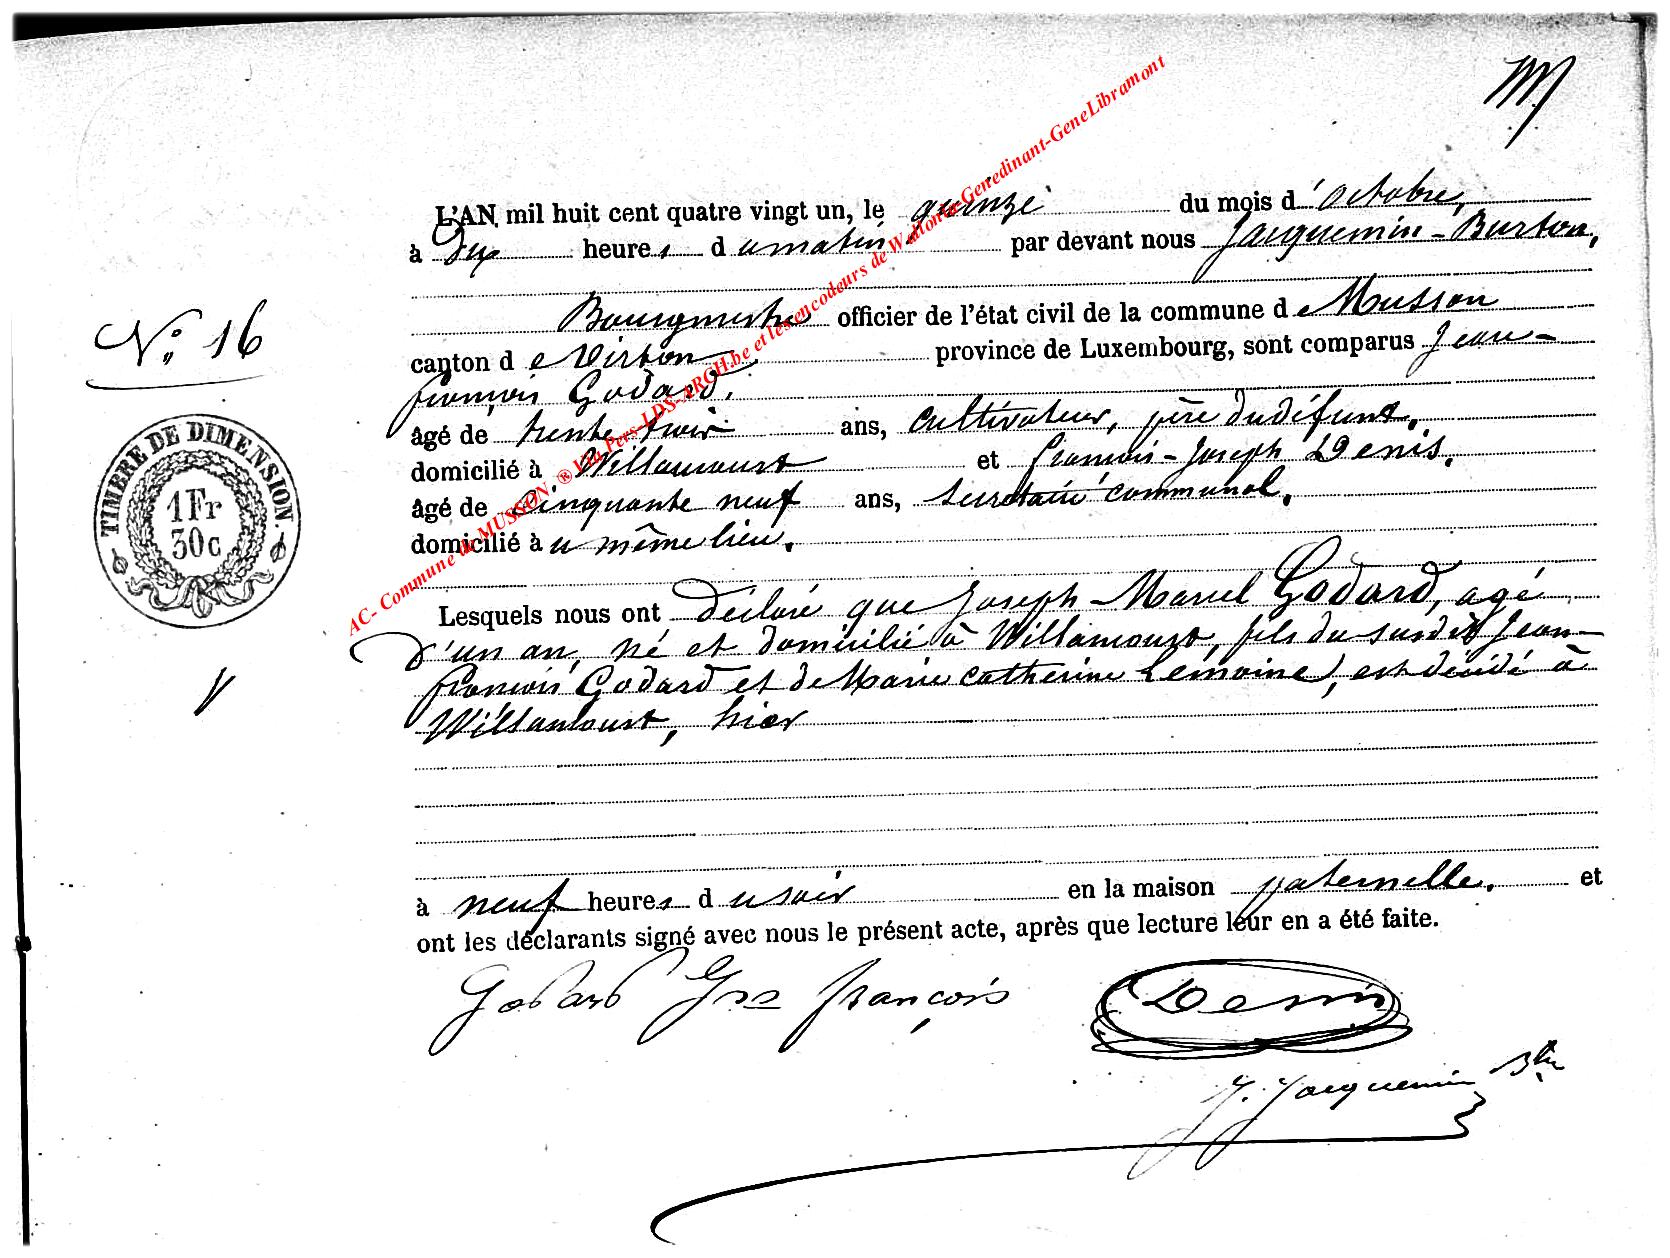 L'AN mil huit cent quatre vingt un, le quinze du mois d'Octobre,
à Dix heures du matin par devant nous Jacquemin-Burton,
Bourgmestre officier de l'état civil de la commune de Musson
N° 16
canton de Virton, province de Luxembourg, sont comparus Jean-
françois Godard,
âgé de trente trois ans, cultivateur, père du défunt,
domicilié à Willancourt et françois-Joseph Denis,
âgé de cinquante neuf ans, secrétaire communal,
domicilié au même lieu,
TIMBRE DE DIMENSION.
1Fr
30c
Lesquels nous ont déclaré que Joseph-Marcel Godard, agé
d'un an, né et domicilié à Willancourt, fils du susdit Jean-
françois Godard et de Marie Catherine Lemoine, est décédé à
Willancourt, hier
à neuf heures du soir en la maison paternelle, et
ont les déclarants signé avec nous le présent acte, après que lecture leur en a été faite.
Godard françois Denis
J. Jacquemin
AC- Commune de MUSSON ® Via Pers-LDS-ARCH.be et les encodeurs de Wallonia-Genedinant-GeneLibramont